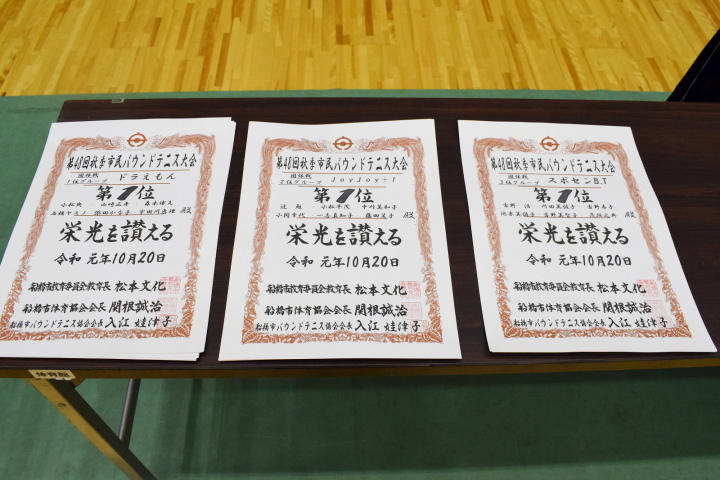 第48回秋季市民バウンドテニス大会
団体戦
1位グループ ドラえもん
第1位
殿
栄光を讃える
令和 元年10月20日
船橋市教育委員会教育長 松本文化
船橋市体育協会会長 関根誠治
船橋市バウンドテニス協会会長 入江 娃津子
第48回秋季市民バウンドテニス大会
団体戦
2位グループ JoyJoy+1
第1位
辻勉 小松千代 十川美和子
小岡幸代 一志真知子 藤田昊子 殿
栄光を讃える
令和 元年10月20日
船橋市教育委員会教育長 松本文化
船橋市体育協会会長 関根誠治
船橋市バウンドテニス協会会長 入江 娃津子
第48回秋季市民バウンドテニス大会
団体戦
3位グループ スポセンB.T
第1位
殿
栄光を讃える
令和 元年10月20日
船橋市教育委員会教育長 松本文化
船橋市体育協会会長 関根誠治
船橋市バウンドテニス協会会長 入江 娃津子
体育館